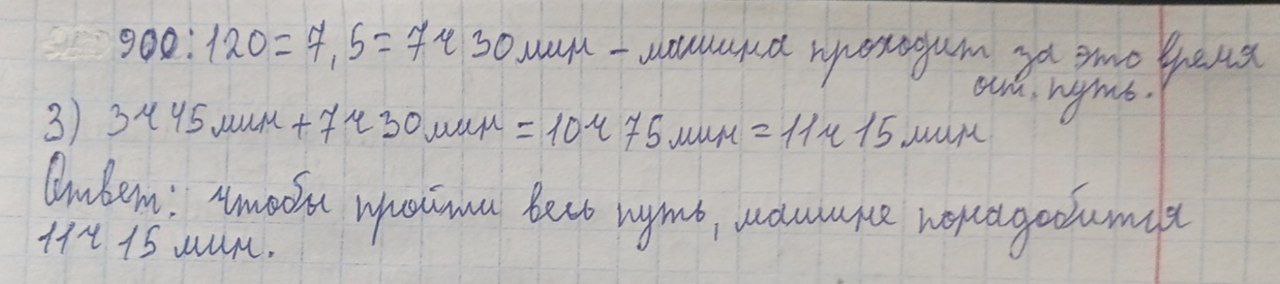 900:120=7,5=7ч 30мин – машина проходит за это время
ост. путь.
3) 3ч 45мин+7ч 30мин=10ч 75мин=11ч 15мин
Ответ: чтобы пройти весь путь, машине понадобится
11ч 15мин.